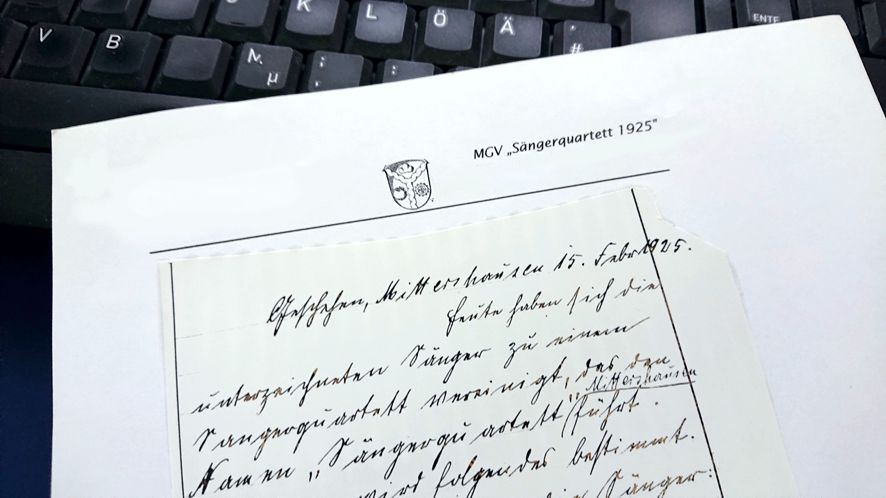 V B K L Ö Ä # ENTER
N M µ ; , : .
MGV „Sängerquartett 1925"
Geschehen, Mittershausen 15. Febr 1925.
Heute haben sich die
unterzeichneten Sänger zu einem
Sangerquartett vereinigt, das den
Namen „Sängerquartett „Mittershausen führt.
wird folgendes bestimmt.
die Sänger: